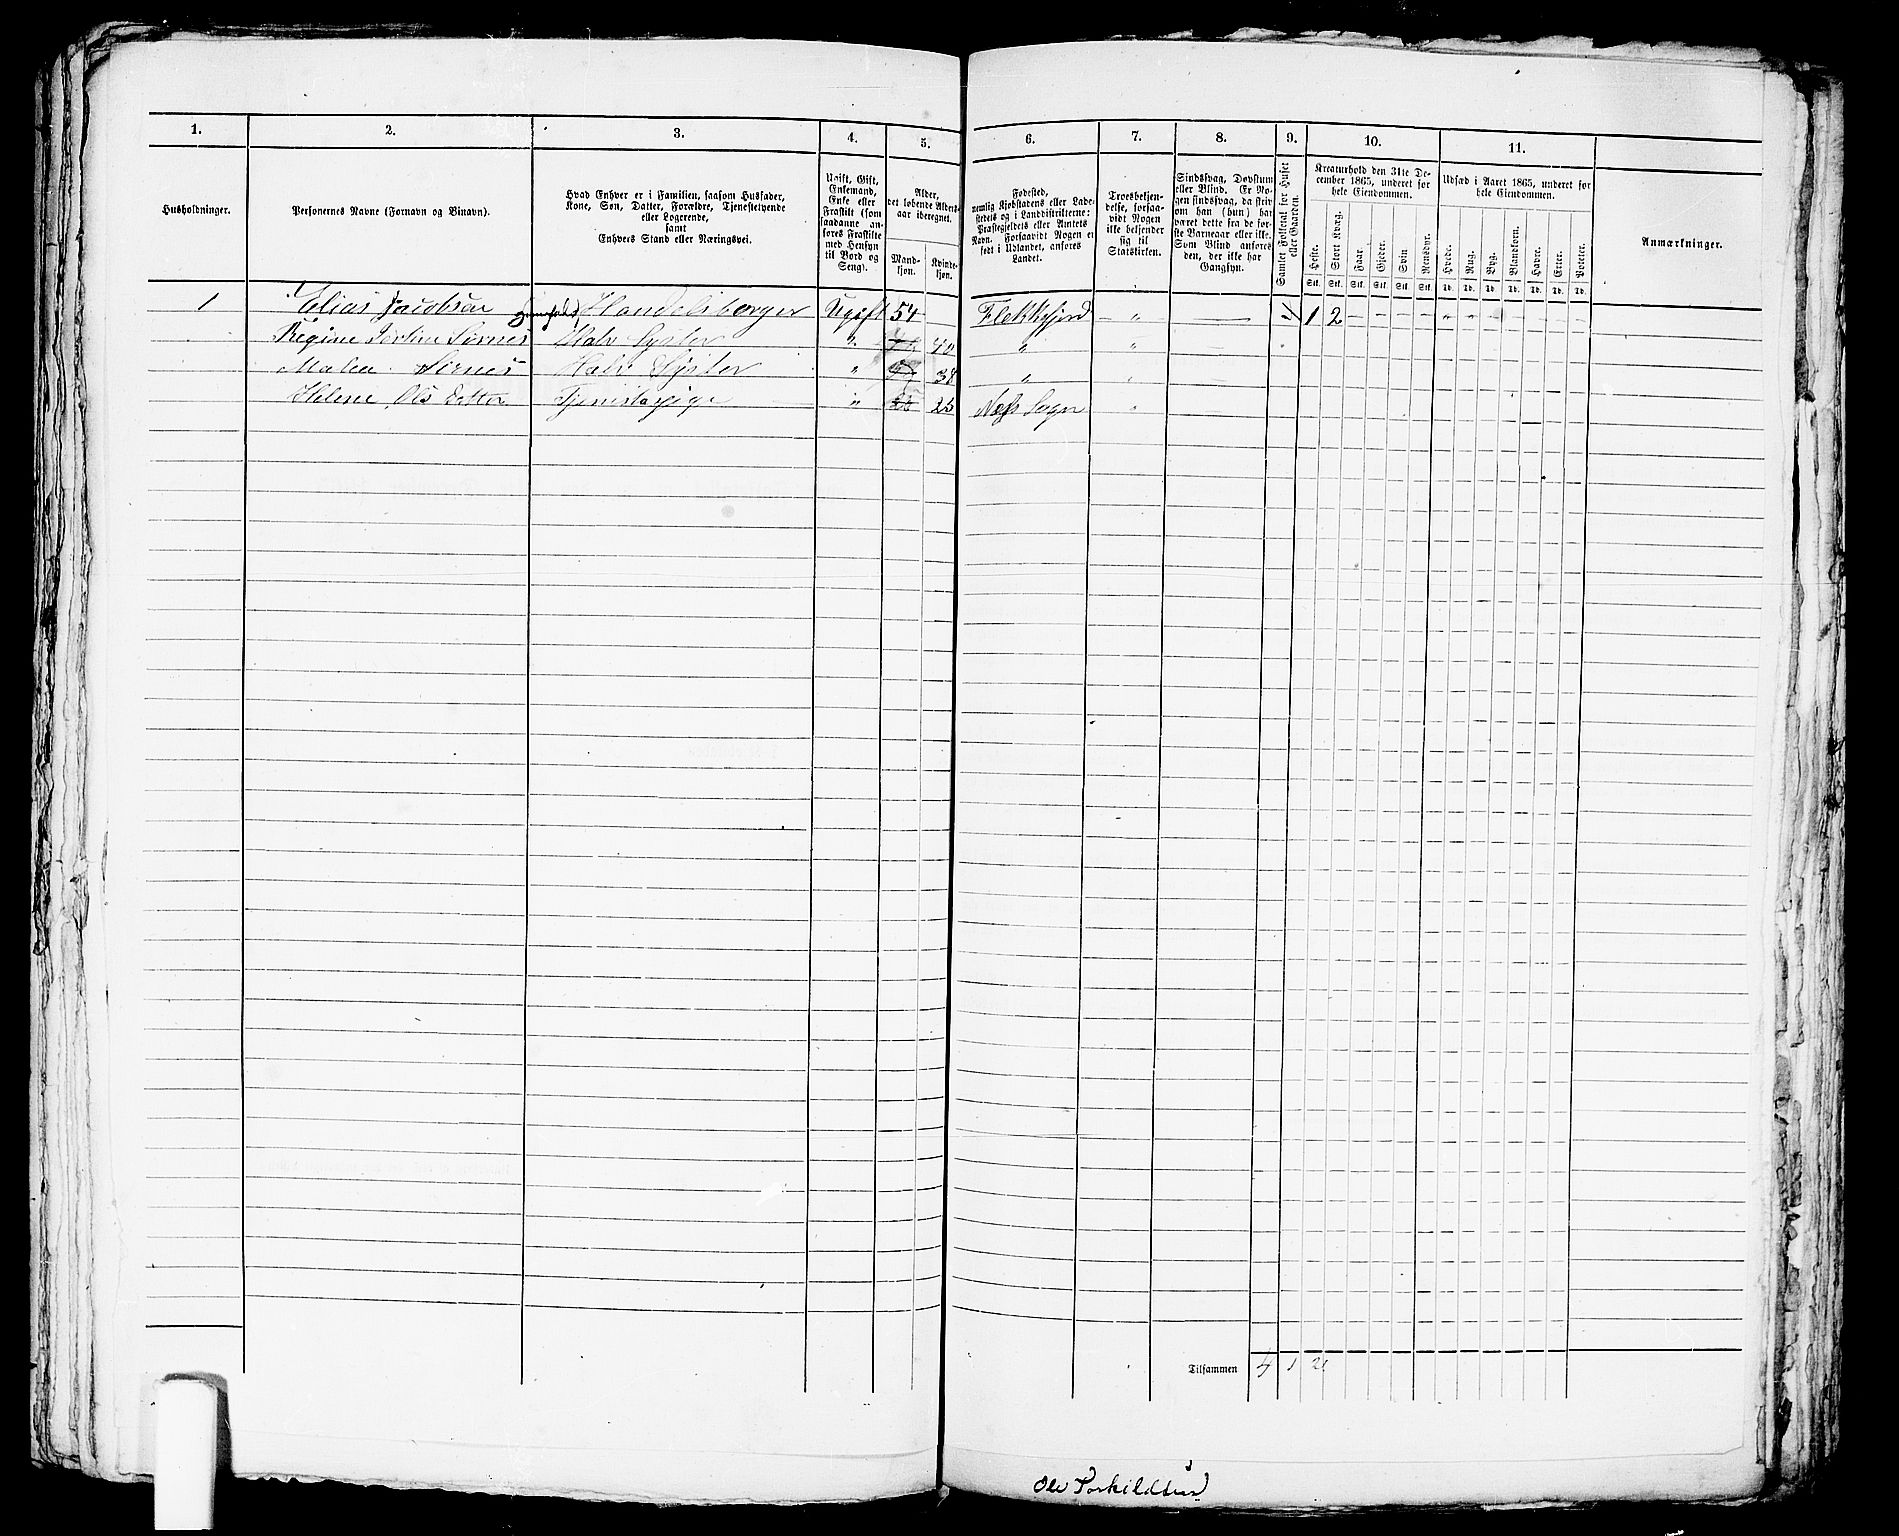 1. 2. 3. 4. 5. 6. 7. 8. 9. 10. 11.
Husholdninger.
Personernes Navne (Fornavn og Binavn).
Hvad Enhver er i Familien, saasom Husfader,
Kone, Søn, Datter, Forældre, Tjenestetyende
eller Logerende,
samt
Enhvers Stand eller Næringsvei.
Ugift, Gift,
Enkemand,
Enke eller
Fraskilt (som
saadanne an-
føres Fraskilte
med Hensyn
til Bord og
Seng).
Alder,
det løbende Alders-
aar iberegnet.
Mand-
kjøn.
Kvinde-
kjøn.
Fødested,
nemlig Kjøbstadens eller Lade-
stedets og i Landdistrikterne:
Præstegjeldets eller Amtets
Navn. Forsaavidt Nogen er
født i Udlandet, anføres
Landet.
Troesbekjen-
delse, forsaa-
vidt Nogen
ikke bekjender
sig til
Statskirken.
Sindssvag, Døvstum
eller Blind. Er No-
gen sindssvag, da skriv
om han (hun) har
været dette fra de før-
ste Barneaar eller ikke.
Som Blind anføres
den, der ikke har
Gangsyn.
Samlet Folketal for Huset
eller Gaarden.
Kreaturhold den 31te De-
cember 1865, underet for
hele Eiendommen.
Heste. Stort Kvæg. Faar. Gjeder. Svin Rensdyr.
Stk. Stk. Stk. Stk. Stk. Stk.
Udsæd i Aaret 1865, underet for
hele Eiendommen.
Hvede. Rug. Byg. Blandkorn. Havre. Erter. Poteter.
Td. Td. Td. Td. Td. Td. Td.
Anmærkninger.
1 Elias Jacobsen Handelsborger Ugift 54 Flekkefjord — " 4 1 2
Regine Sirnes Halv Syster " 40 " "
Malea Sirnes Halv Syster " 38 "
Helene Ols Datter Tjenistepige " 25 Næs Sogn "
Tilsammen 4 1 2
Ole Torkildsen